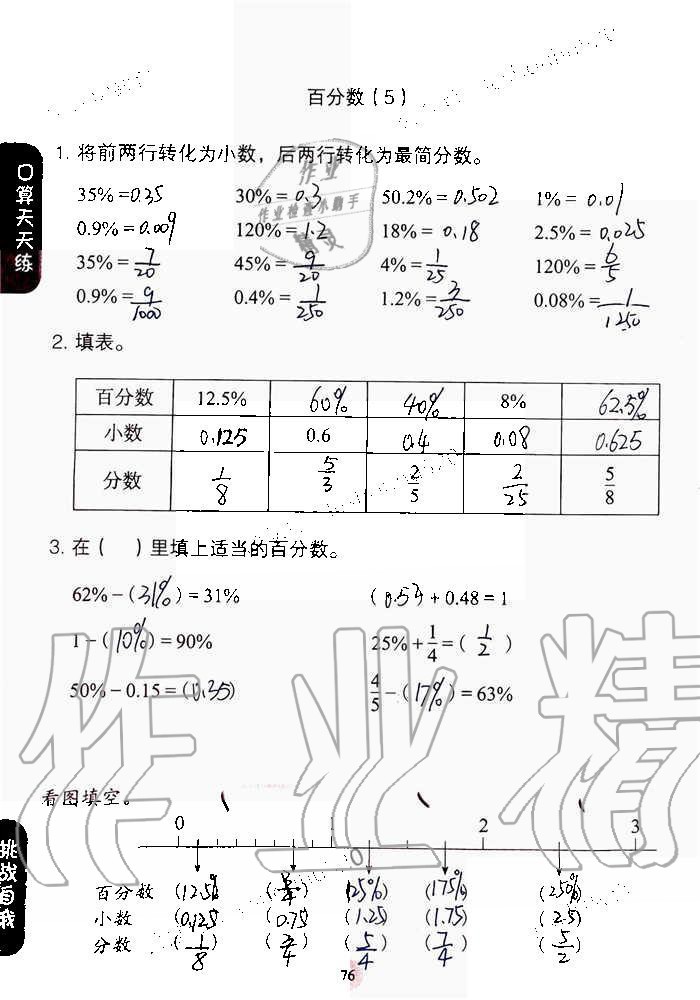 百分数（5）
口算天天练
1. 将前两行转化为小数，后两行转化为最简分数。
35% = 0.35 30% = 0.3 50.2% = 0.502 1% = 0.01
0.9% = 0.009 120% = 1.2 18% = 0.18 2.5% = 0.025
35% = 7/20 45% = 9/20 4% = 1/25 120% = 6/5
0.9% = 9/1000 0.4% = 1/250 1.2% = 3/250 0.08% = 1/1250
2. 填表。
百分数 12.5% 60% 40% 8% 62.5%
小数 0.125 0.6 0.4 0.08 0.625
分数 1/8 5/3 2/5 2/25 5/8
3. 在（ ）里填上适当的百分数。
62% − (31%) = 31% (0.53 + 0.48 = 1
1 − (10%) = 90% 25% + 1/4 = ( 1/2 )
50% − 0.15 = (0.35) 4/5 − (17%) = 63%
挑战自我
看图填空。
0 1 2 3
百分数 (12.5% ( ) 125%) (175%) (250%)
小数 (0.125 (0.75 (1.25) (1.75) (2.5)
分数 (1/8) (3/4 (5/4) (7/4) (5/2)
76
作业精
作业
作业检查小助手
精灵